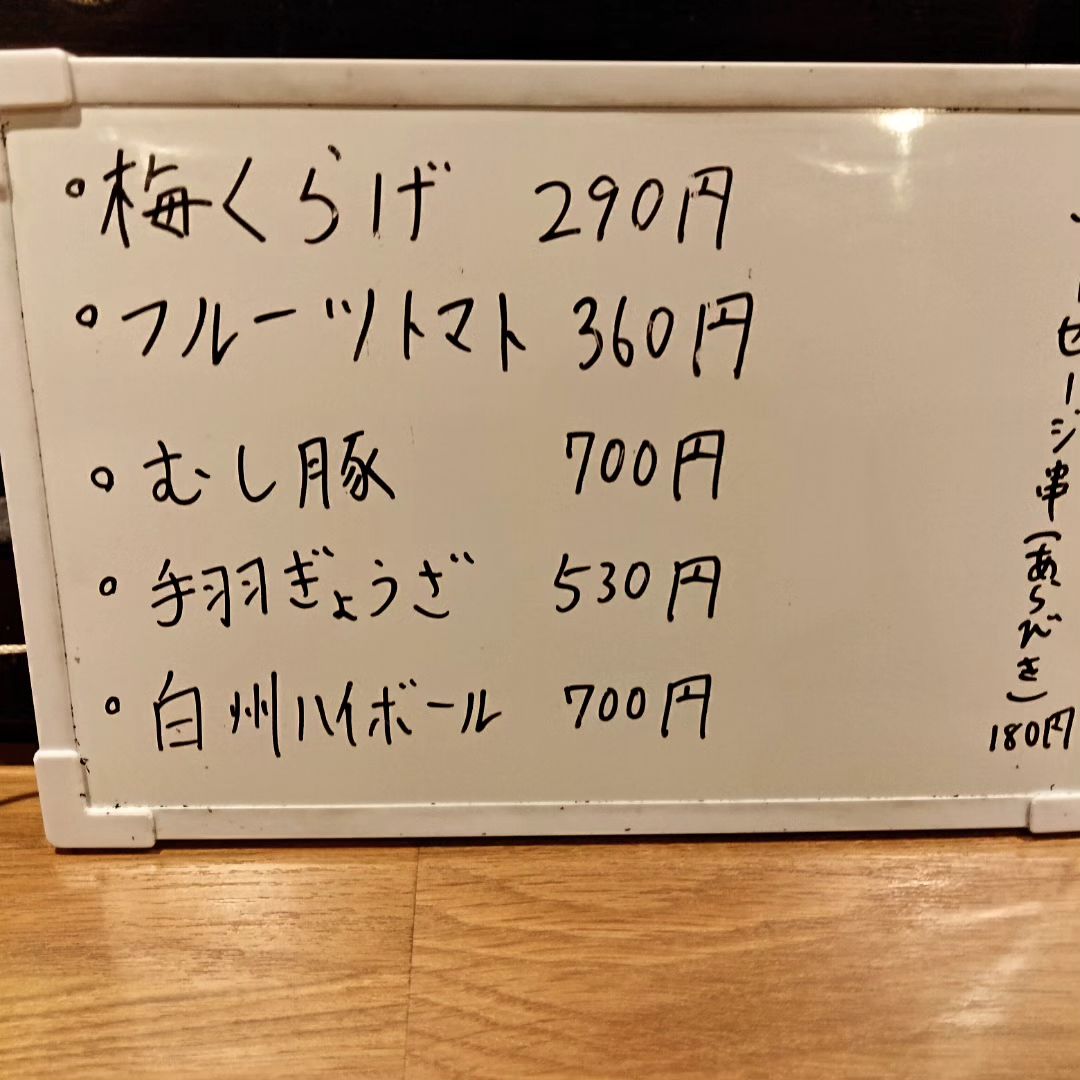 ・梅くらげ 290円
・フルーツトマト 360円
・むし豚 700円
・手羽ぎょうざ 530円
・白州ハイボール 700円
ーセージ串(あらびき)
180円